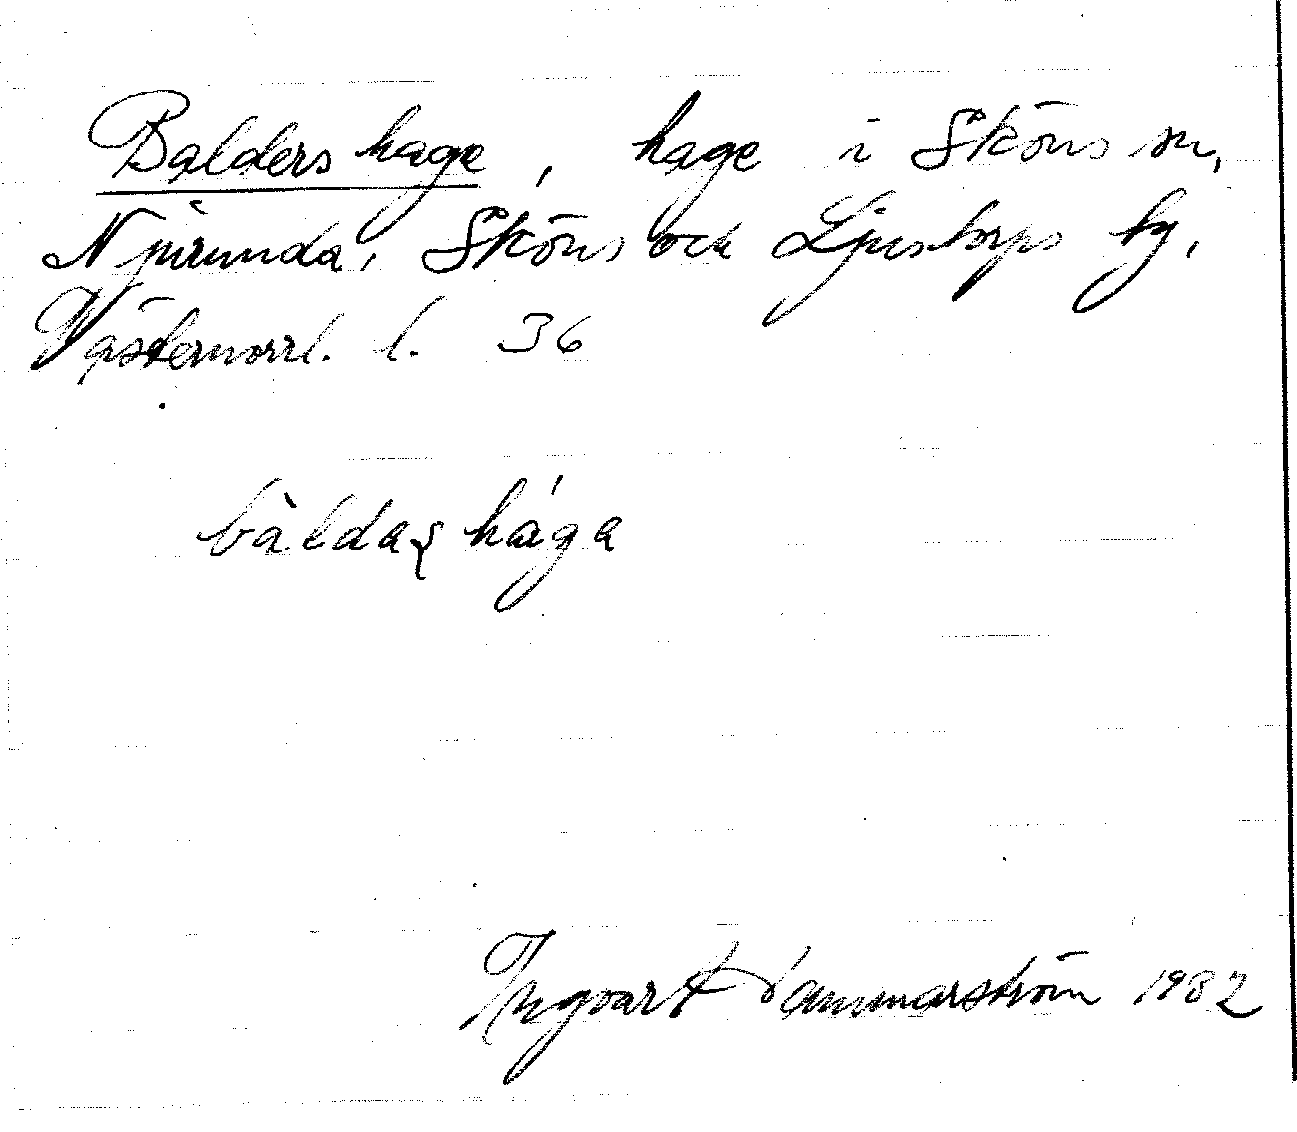 Baldershage, hage i Sköns sn,
Njurunda, Sköns och Ljustorps tg,
Västernorrl. l. 36
bàldaʂ hága
Ingvar Hammarström 1982